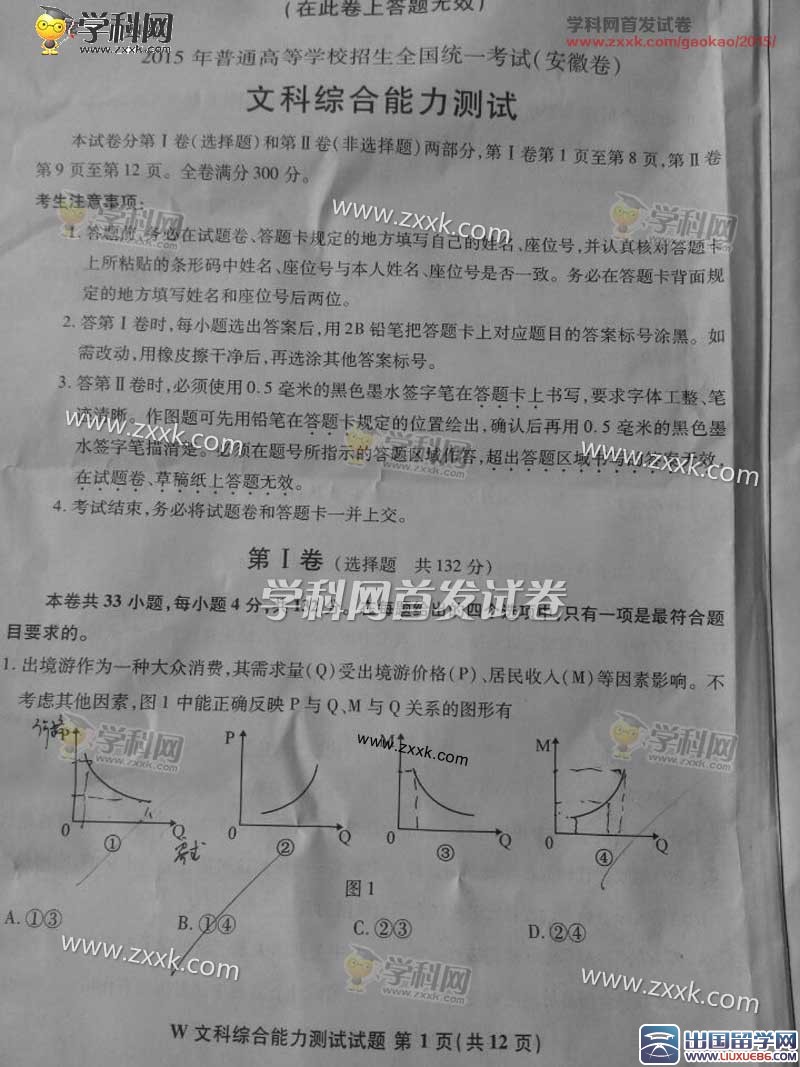 (在此卷上答题无效)
学科网
学科网首发试卷
www.zxxk.com/gaokao/2015/
2015年普通高等学校招生全国统一考试(安徽卷)
文科综合能力测试
本试卷分第Ⅰ卷(选择题)和第Ⅱ卷(非选择题)两部分,第Ⅰ卷第1页至第8页,第Ⅱ卷
第9页至第12页。全卷满分300分。
考生注意事项:
学科网
www.zxxk.com
学科网
1. 答题前,务必在试题卷、答题卡规定的地方填写自己的姓名、座位号,并认真核对答题卡
上所粘贴的条形码中姓名、座位号与本人姓名、座位号是否一致。务必在答题卡背面规
定的地方填写姓名和座位号后两位。
2. 答第Ⅰ卷时,每小题选出答案后,用2B铅笔把答题卡上对应题目的答案标号涂黑。如
需改动,用橡皮擦干净后,再选涂其他答案标号。
3. 答第Ⅱ卷时,必须使用0.5毫米的黑色墨水签字笔在答题卡上书写,要求字体工整、笔
迹清晰。作图题可先用铅笔在答题卡规定的位置绘出,确认后再用0.5毫米的黑色墨
www.zxxk.com
学科网
www.zxxk.com
水签字笔描清楚。必须在题号所指示的答题区域作答,超出答题区域书写的答案无效,
在试题卷、草稿纸上答题无效。
4. 考试结束,务必将试题卷和答题卡一并上交。
第Ⅰ卷(选择题 共132分)
学科网首发试卷
本卷共33小题,每小题4分,共132分。在每题给出的四个选项中,只有一项是最符合题
目要求的。
1. 出境游作为一种大众消费,其需求量(Q)受出境游价格(P)、居民收入(M)等因素影响。不
考虑其他因素,图1中能正确反映P与Q、M与Q关系的图形有
学科网
www.zxxk.com
学科网
P P M M
0 Q 0 Q 0 Q 0 Q
① ② ③ ④
图1
A. ①③ B. ①④ C. ②③ D. ②④
www.zxxk.com
学科网
www.zxxk.com
W 文科综合能力测试试题 第1页(共12页)
出国留学网
www.liuxue86.com